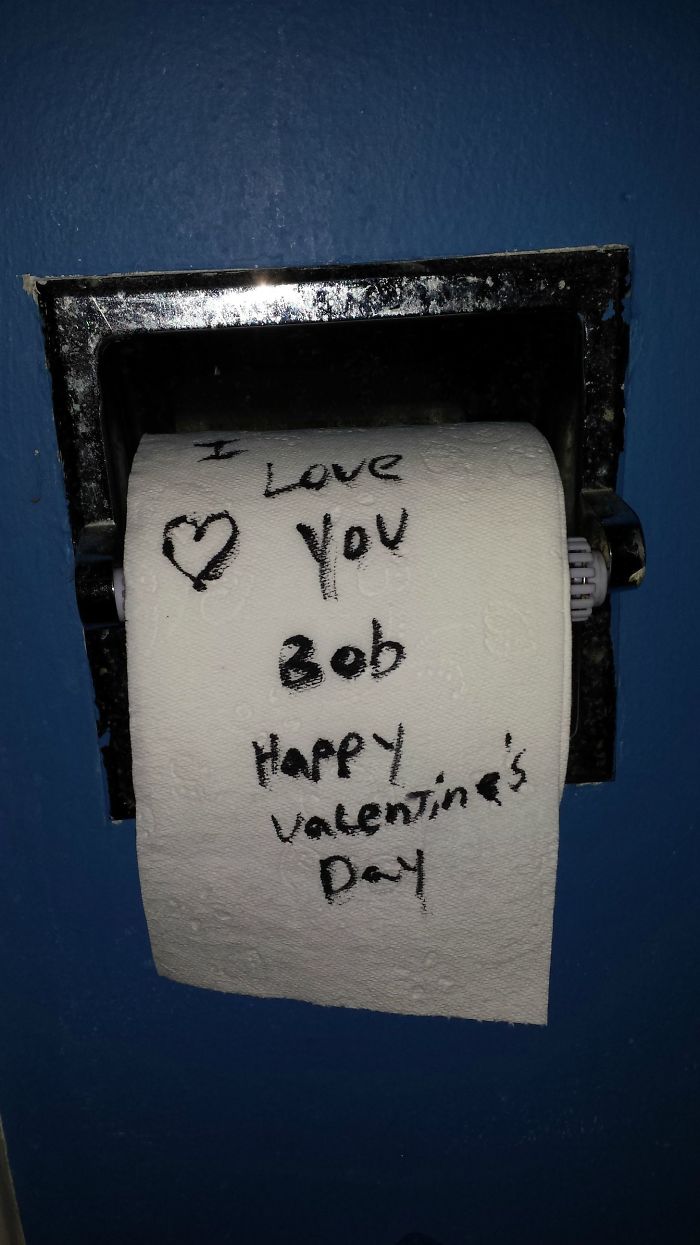 I
Love
You
Bob
Happy
Valentine's
Day